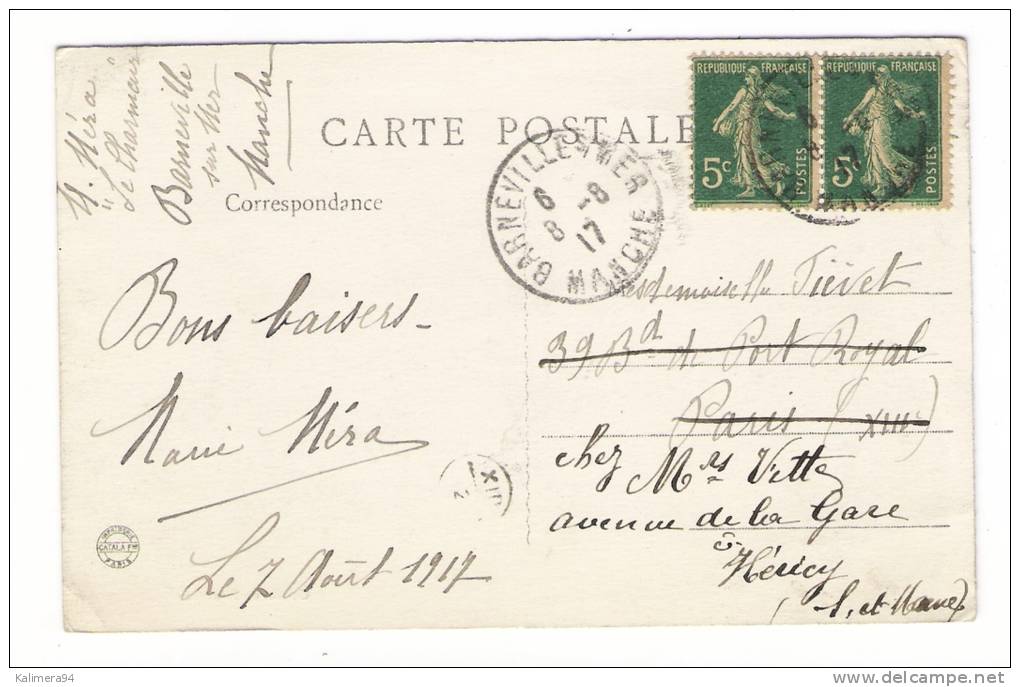 M. Méra
"Le Charmeur
Barneville
sur Mer
Manche
CARTE POSTALE
Correspondance
REPUBLIQUE FRANÇAISE
5c
POSTES
REPUBLIQUE FRANÇAISE
5c
POSTES
BARNEVILLE-S-MER
6 -8
8 17
MANCHE
Bons baisers_
Marie Méra
Le 7 Août 1917
Mesdemoiselles Tiévet
39 Bd de Port Royal
Paris (XIIIe)
chez Mrs Vitte
avenue de la Gare
à Héricy
(S. et Marne)
XIII
2
IMPRIMERIE
CATALA FRES
PARIS
Kalimera94
www.delcampe.net